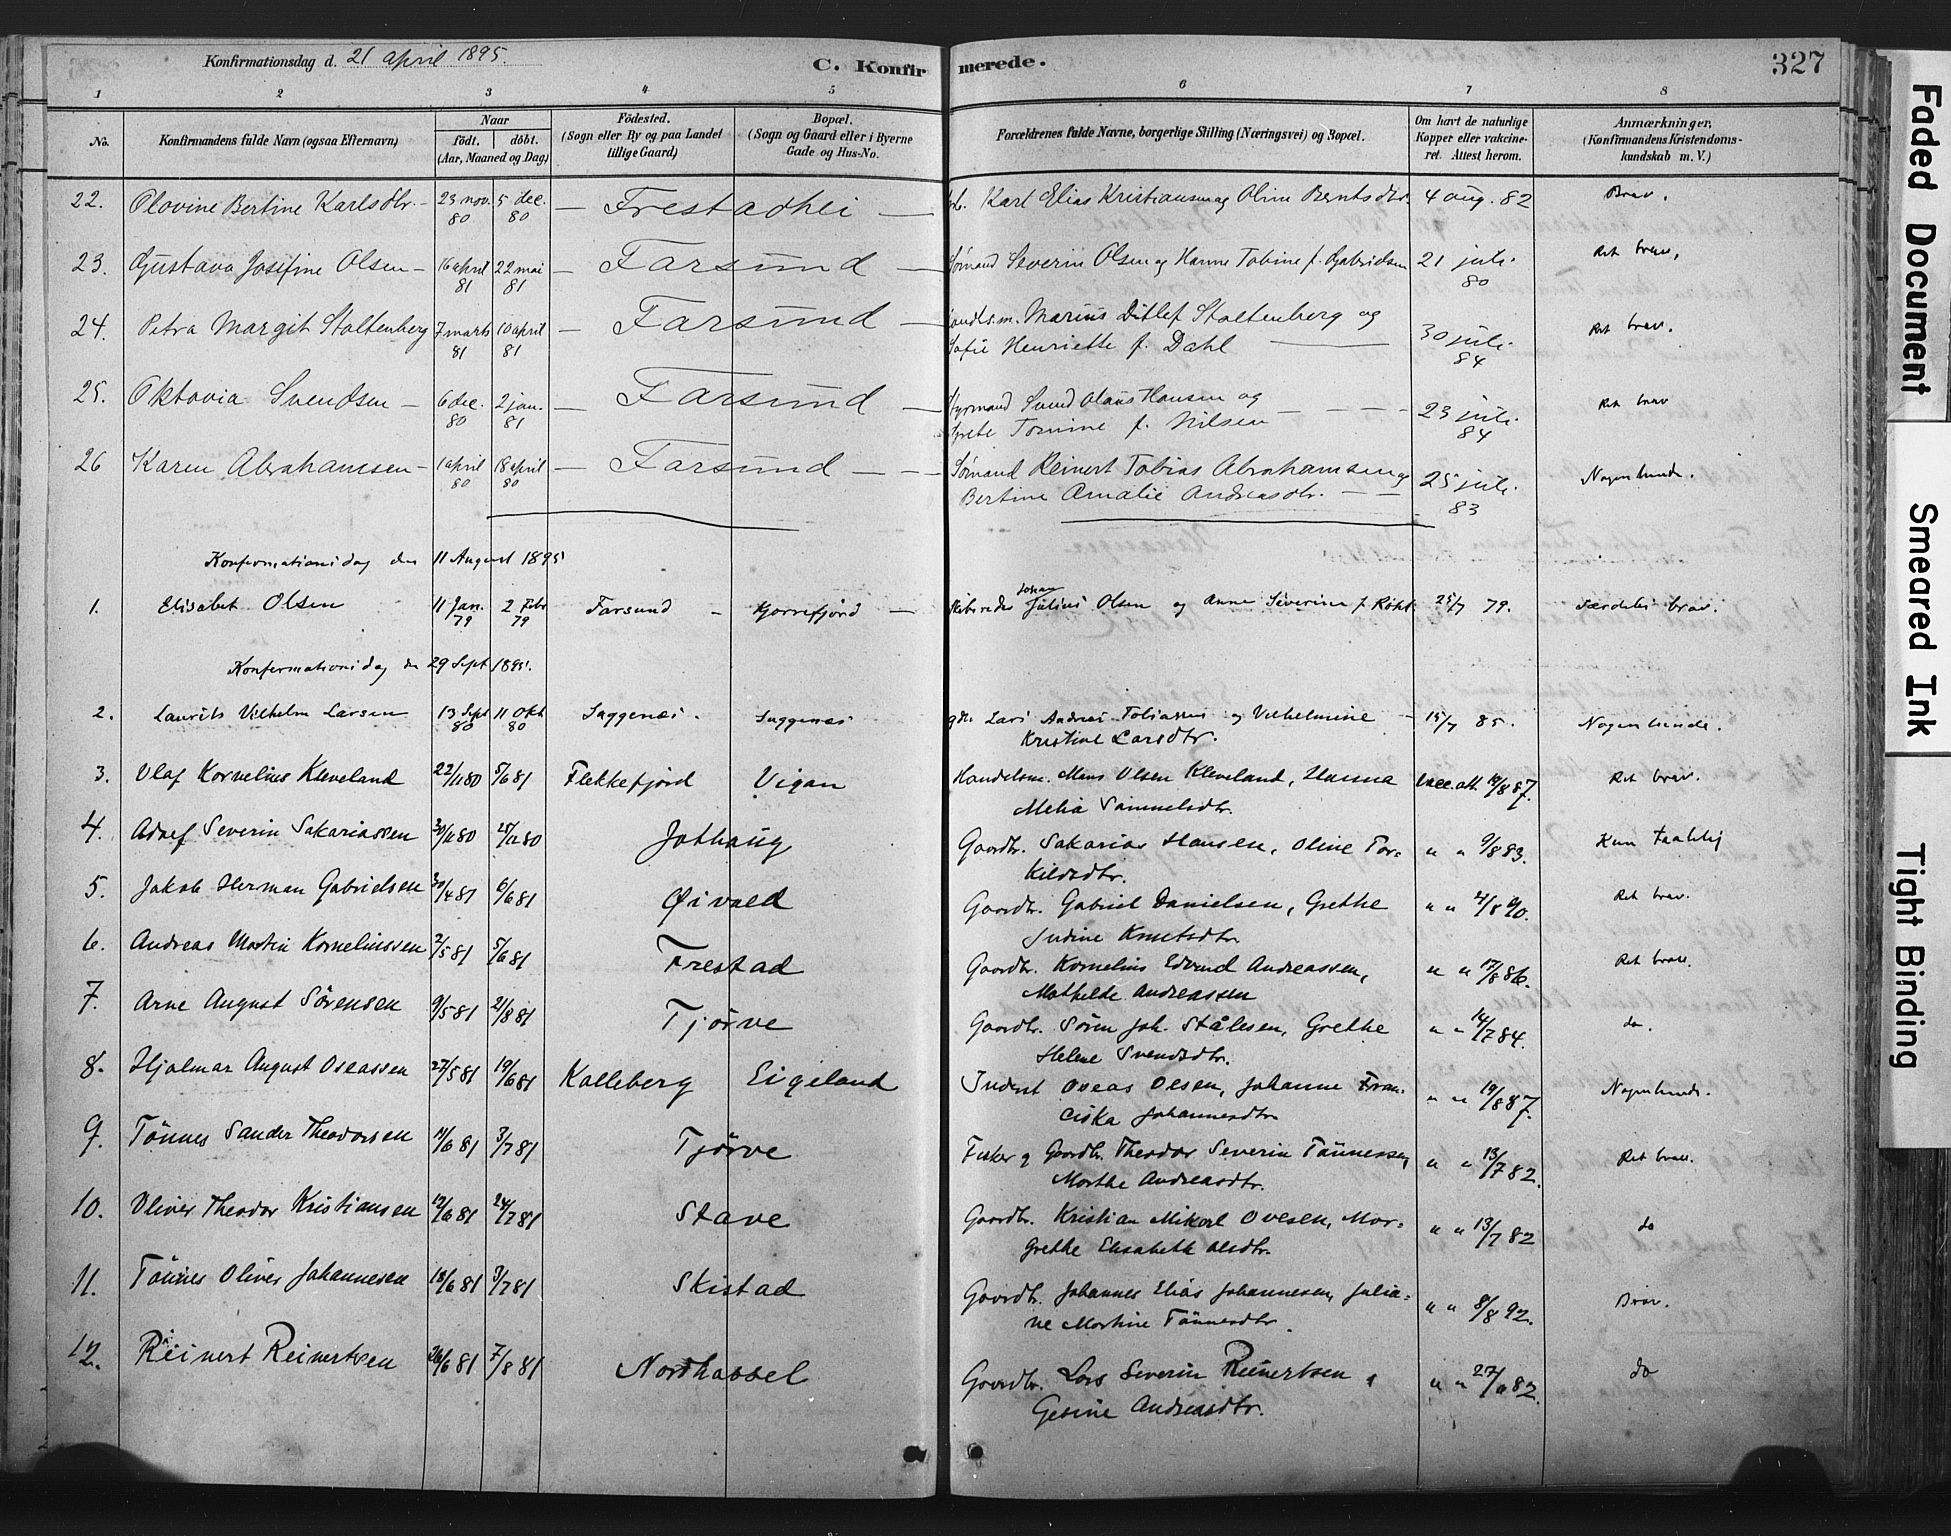 Konfirmationsdag d. 21 april 1895.
C. Konfirmerede.
327
1 2 3 4 5 6 7 8
No. Konfirmandens fulde Navn (ogsaa Efternavn) Naar født, døbt. (Aar, Maaned og Dag) Fødested. (Sogn eller By og paa Landet tillige Gaard) Bopæl. (Sogn og Gaard eller i Byerne Gade og Hus-No. Forældrenes fulde Navne, borgerlige Stilling (Næringsvei) og Bopæl. Om havt de naturlige Kopper eller vakcineret. Attest herom. Anmærkninger, (Konfirmandens Kristendomskundskab m. V.)
22. Olovine Bertine Karlsdtr. – 23 nov. 80 5 dec. 80 – Frestadhei – Karl Elias Kristiansen og Oline Berntsdtr. 4 aug. 82 Brav.
23. Gustava Josefine Olsen – 16 april 81 22 mai 81 – Farsund – Sømand Severin Olsen og Hanne Tobine f. Gabrielsen 21 juli 80 Ret brav,
24. Petra Margit Stoltenberg 7 marts 81 10 april 81 – Farsund – Handlsm. Marius Ditlef Stoltenberg og
Sofie Henriette f. Dahl 30 juli 84 Ret brav.
25. Oktavia Svendsen – 6 dec. 80 2 jan. 81 – Farsund – Styrmand Svend Olaus Hansen og
Grete Tomine f. Nilsen – – – – 23 juli 84 Ret brav
26 Karen Abrahamsen – 1 april 80 18 april 80 – Farsund – – Sømand Reinert Tobias Abrahamsen og
Bertine Amalie Andreasdtr. – – 25 juli 83 Nogenlunde.
Konfirmationsdag den 11 August 1895
1. Elisabet Olsen 11 Jan. 79 2 Febr 79 Farsund – Kjørrefjord – Skibsreder Johan Julius Olsen og Anne Severine f. 25/7 79. Særdeles brav.
Konfirmationsdag den 29 Sept 1895.
2. Laurits Vilhelm Larsen 13 Sept 80 11 Okt 80 Saggenæs. Saggenæs gdr. Lars Andreas Tobiassen og Vilhelmine –
Kristine Larsdtr. 15/7 85. Nogenlunde.
3. Olaf Kornelius Kleveland 22/11 80 5/6 81 Flekkefjord Vigan Handelsm. Mons Olsen Kleveland, Hanna
Melia Samuelsdtr. Vacc. att. 19/8 87. Ret brav.
4. Adolf Severin Sakariassen 30/11 80 25/12 80 Jothaug Gaardbr. Sakarias Hansen, Oline Tor-
kildsdtr. " " 9/8 83. Kun taalelig
5. Jakob Herman Gabrielsen 30/4 81 6/6 81 Øivold Gaardbr. Gabriel Danielsen, Grethe
Judine Knutsdtr " " 21/8 90. Ret brav.
6. Andreas Martin Korneliussen 2/5 81 5/6 81 Frestad Gaardbr. Kornelius Edvind Andreassen,
Mathilde Andreassen " " 17/8 86. Ret brav.
7. Arne August Sørensen 9/5 81 21/8 81 Tjørve Gaardbr. Søren Joh. Stålesen, Grethe
Helene Svendsdtr. " " 14/7 84. do.
8. Hjalmar August Oseassen 27/5 81 19/6 81 Kalleberg Eigeland Inderst Oseas Olsen, Johanne Fran-
ciska Johannesdtr " " 19/8 87. Nogenlunde.
9. Tønnes Sander Theodorsen 11/6 81 3/7 81 Tjørve Fisker og Gaardb. Theodor Severin Tønnessen,
Marthe Andreasdtr. " " 13/7 82. Ret brav.
10. Oliver Theodor Kristiansen 12/6 81 24/7 81 Stave Gaardbr. Kristian Mikael Ovesen, Mar-
grethe Elisabeth Olsdtr. " " 13/7 82 do
11. Tønnes Oliver Johannesen 18/6 81 3/7 81 Skistad Gaardbr. Johannes Elias Johannesen, Julia-
ne Martine Tønnesdtr. " " 8/8 92. Brav.
12. Reinert Reinertsen 26/6 81 7/8 81 Nordhassel Gaardbr. Lars Severin Reinertsen,
Gesine Andreasdtr. " " 27/9 82. do
Faded Document
Smeared Ink
Tight Binding